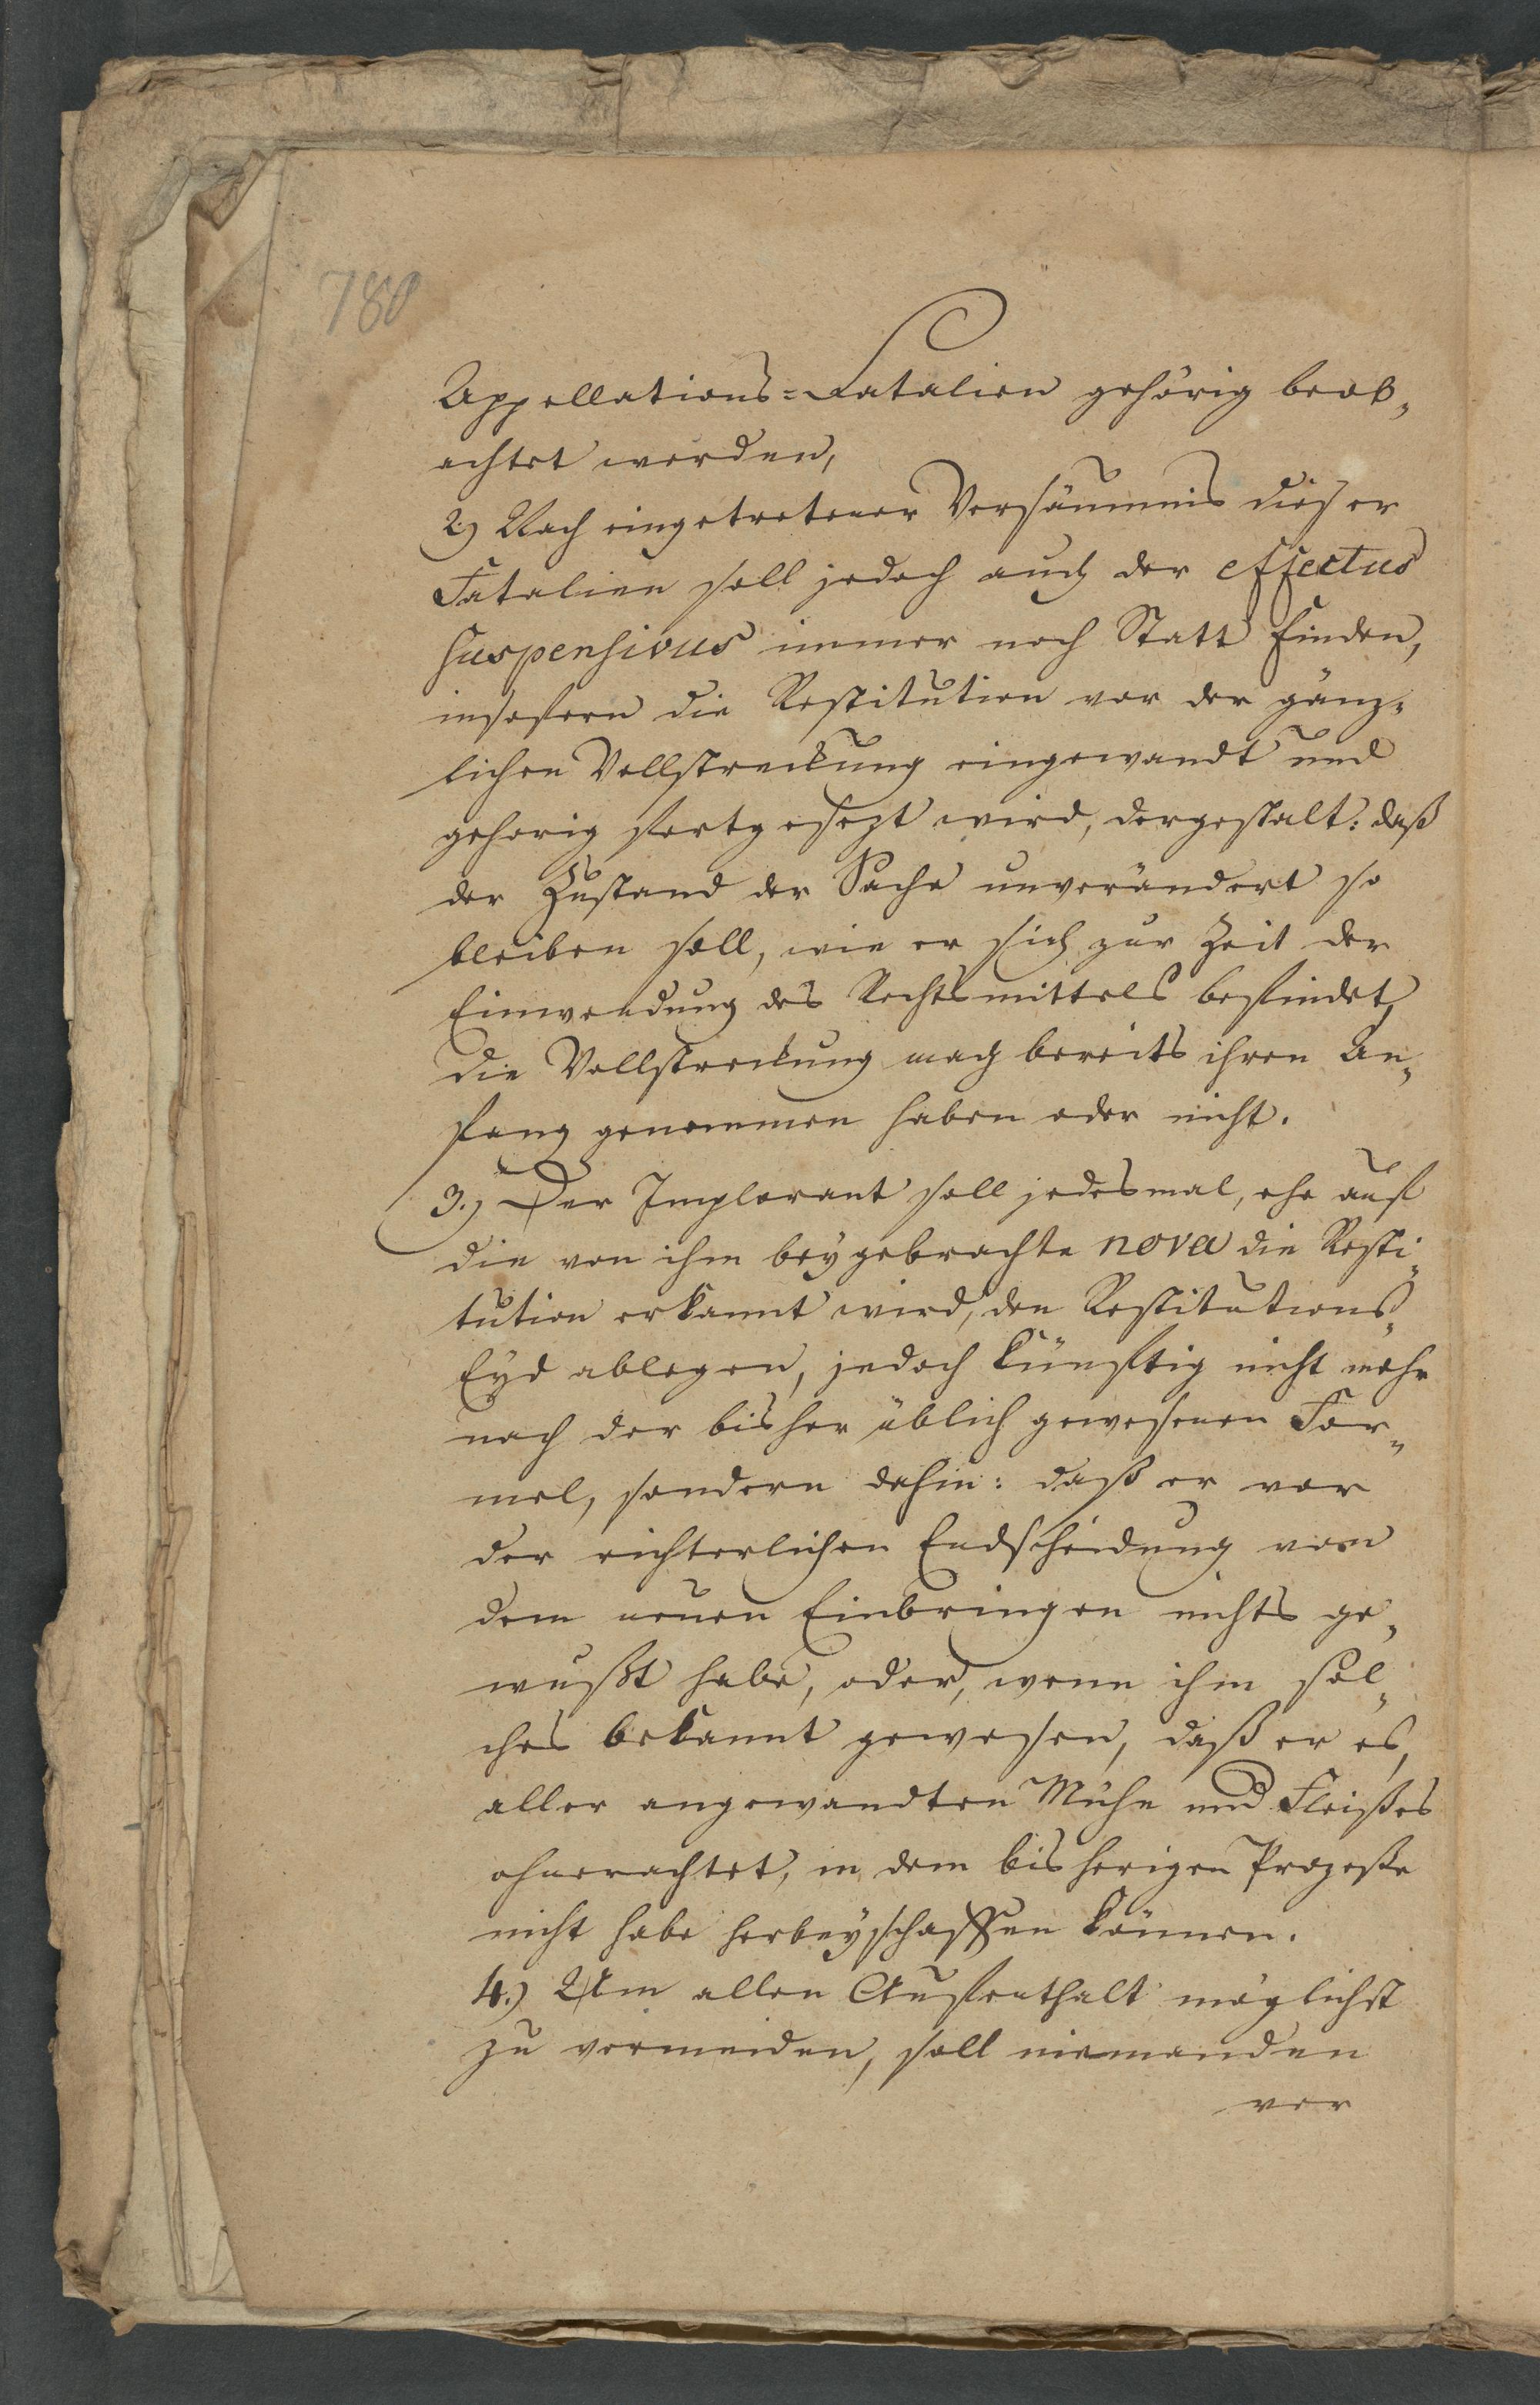 780
Appellations=Fatalien gehörig beob„
achtet werden,
2.) Nach eingetretener Versäumnis dieser
Fatalien soll jedoch auch der effectus
suspensivus immer noch Statt finden,
insofern die Restitution vor der gänz„
lichen Vollstreckung eingewandt und
gehorig fortgesezt wird, dergestalt: daß
der Zustand der Sache unverändert so
bleiben soll, wie er sich zur Zeit der
Einwendung des Rechtsmittels befindet,
die Vollstreckung mag bereits ihren An„
fang genommen haben oder nicht.
3.) Der Implorant soll jedesmal, ehe auf
die von ihm beygebrachte nova die Resti„
tution erkannt wird, den Restitutions„
Eyd ablegen, jedoch künftig nicht mehr
nach der bisher üblich gewesenen For„
mel, sondern dahin: daß er vor
der richterlichen Endscheidung von
dem neuen Einbringen nichts ge„
wußt habe, oder, wenn ihm sol„
ches bekannt gewesen, daß er es,
aller angewandten Mühe und Fleißes
ohnerachtet, in dem bisherigen Prozeße
nicht habe herbeyschaffen können.
4.) Um allen Aufenthalt möglichst
zu vermeiden, soll niemanden
ver